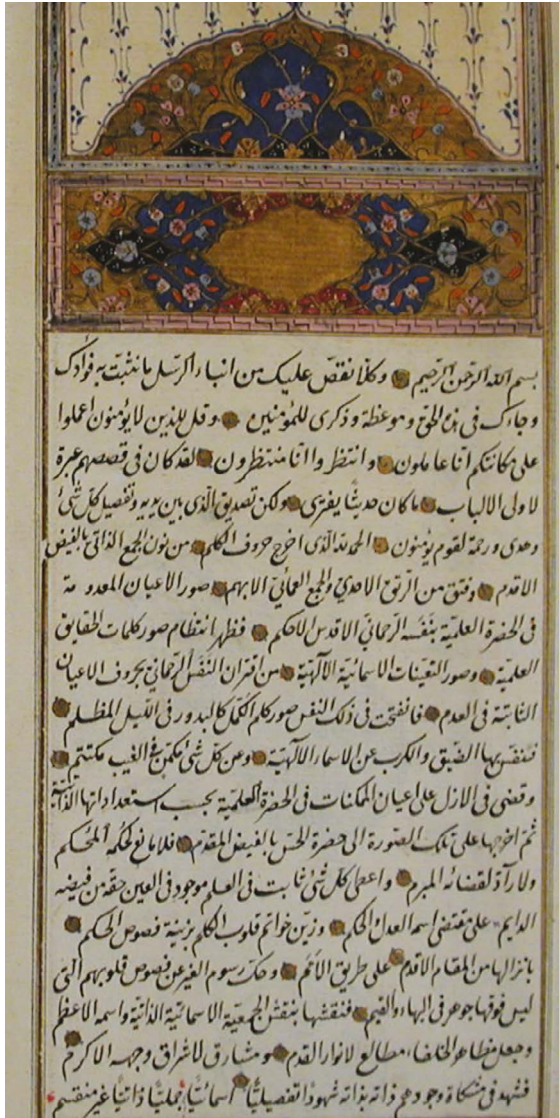 بسم الله الرحمن الرحيم وكلا نقص عليك من انباء الرسل ما نثبت به فوادك
وجاءك فى هذه الحق وموعظة وذكرى للمؤمنين وقل للذين لا يؤمنون اعملوا
على مكانتكم انا عاملون وانتظروا انا منتظرون لقد كان فى قصصهم عبرة
لاولى الالباب ما كان حديثا يفترى ولكن تصديق الذى بين يديه وتفصيل كل شئ
وهدى ورحمة لقوم يؤمنون الحمد لله الذى اخرج حروف الكلم من نون الجمع الذاتى بالفيض
الاقدم وفتق من الرتق الاحدى والجمع العمائى الابهم صور الاعيان المعدومة
فى الحضرة العلمية بنفسه الرحمانى الاقدس الاحكم فظهر انتظام صور كلمات الحقايق
العلمية وصور التعينات الاسمائية الالهية من اقتران النفس الرحمانى بحروف الاعيان
الثابتة فى العدم فانفتحت فى ذلك النفس صور كلم الكمل كالبدور فى الليل المظلم
فتنفس بها الضيق والكرب عن الاسماء الالهية وعن كل شئ مكمن فى الغيب مكتتم
وقضى فى الازل على اعيان الممكنات فى الحضرة العلمية بحسب استعداداتها الذاتية
ثم اخرجها على تلك الصورة الى حضرة الحس بالفيض المقدم فلا مانع لحكمه المحكم
ولا راد لقضائه المبرم واعطى كل شئ ثابت فى العلم موجود فى العين حقه من فيضه
الدايم على مقتضى اسمه العدل الحكم وزين خواتم قلوب الكلم بزينة فصوص الحكم
بانزالها من المقام الاقدم على طريق الامم وحك رسوم الغير عن فصوص قلوبهم التى
ليس فوقها جوهر فى البهاء والقيم فنقشها بنقش الجمعية الاسمائية الذاتية واسمه الاعظم
وجعل مظاهر الخلفاء مطالع لانوار القدم ومشارق لاشراق وجهه الاكرم
فشهد فى مشكاة وجودهم ذاته بذاته شهودا تفصيليا اسمائيا جمليا ذاتيا غير منقسم